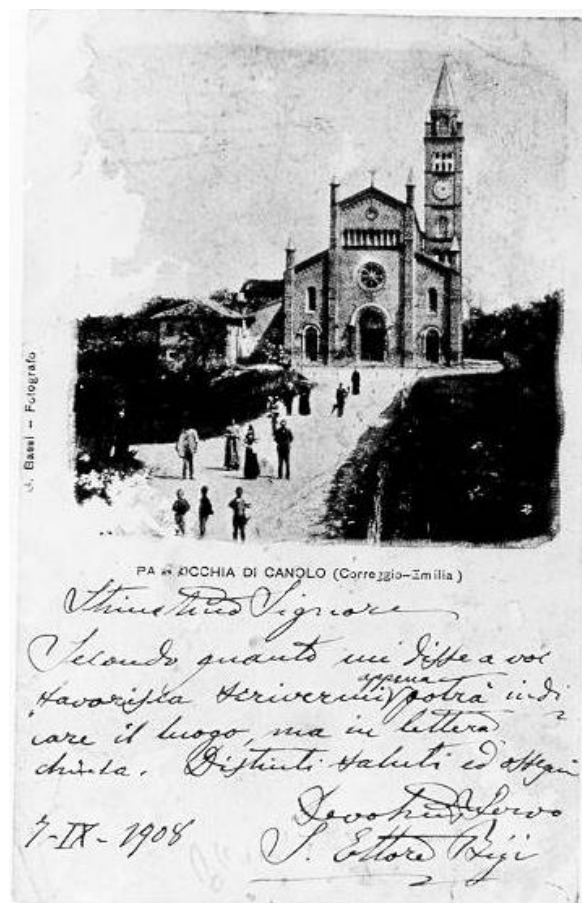 G. Bassi – Fotografo
PARROCCHIA DI CANOLO (Correggio-Emilia)
Stimatmo Signore
Secondo quanto mi disse a voi
favorisca scrivermi appena potrà indi
care il luogo, ma in lettera
chiusa. Distinti saluti ed ossequi
Devotmo Servo
7-IX-1908
Ettore Bigi